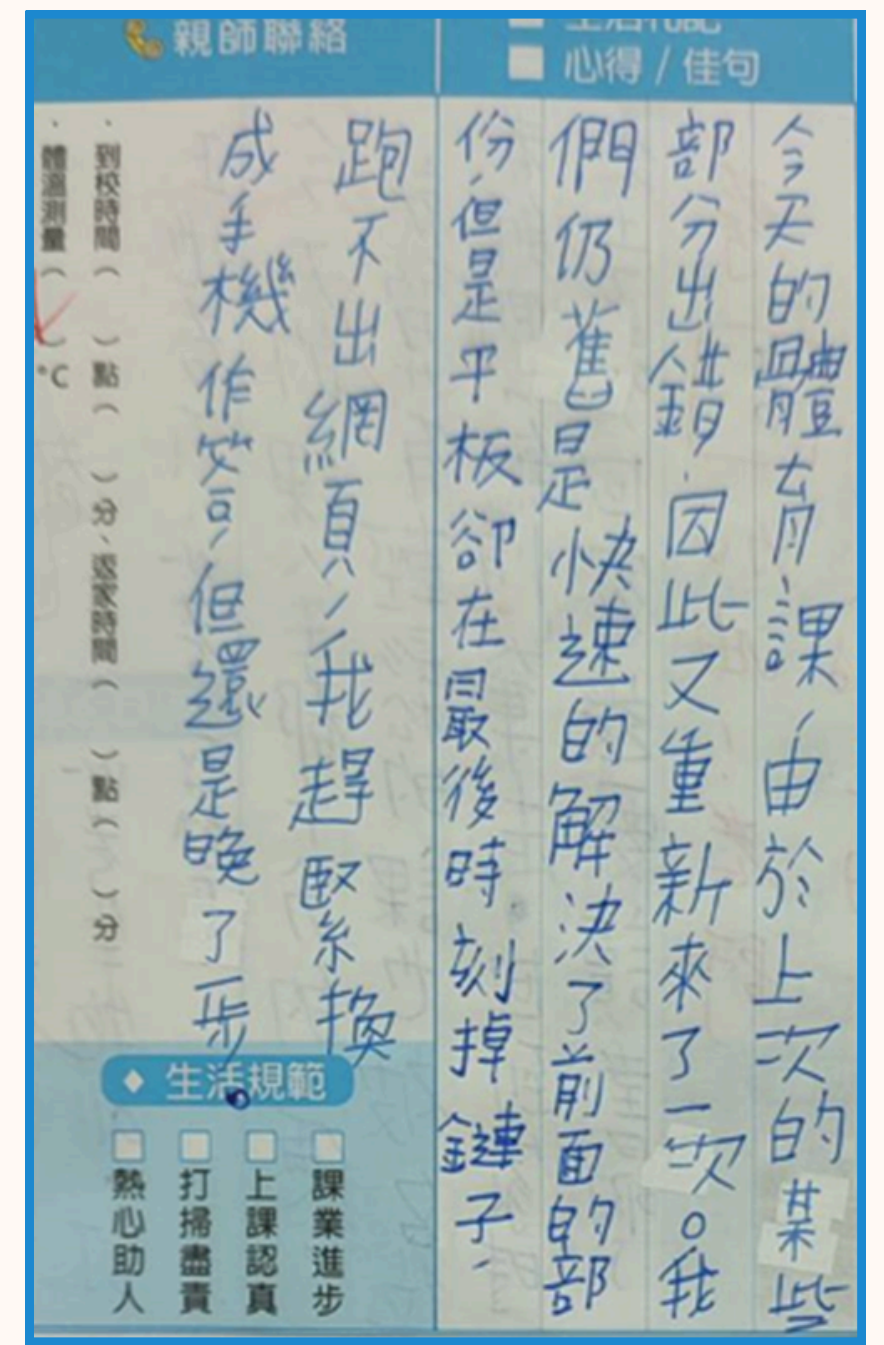 親師聯絡
心得/佳句
今天的體育課,由於上次的某些
部分出錯,因此又重新來了一次。我
們仍舊是快速的解決了前面的部
份,但是平板卻在最後時刻掉鏈子,
跑不出網頁,我趕緊換
成手機作答,但還是晚了一步。
、到校時間( )點( )分、返家時間( )點( )分
、體溫測量( )°C
生活規範
課業進步
上課認真
打掃盡責
熱心助人